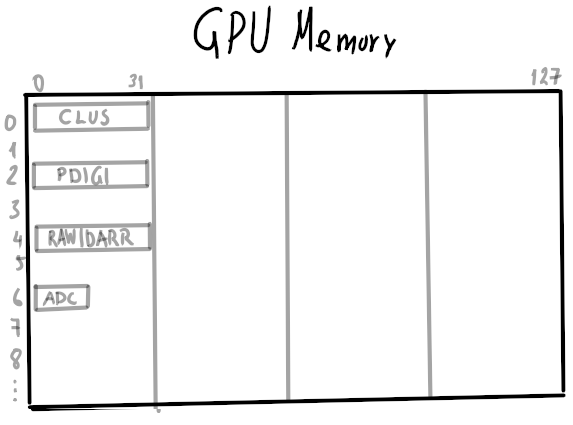 GPU Memory
0 31 127
0 CLUS
1
2 PDIGI
3
4 RAWIDARR
5
6 ADC
7
8
⋮